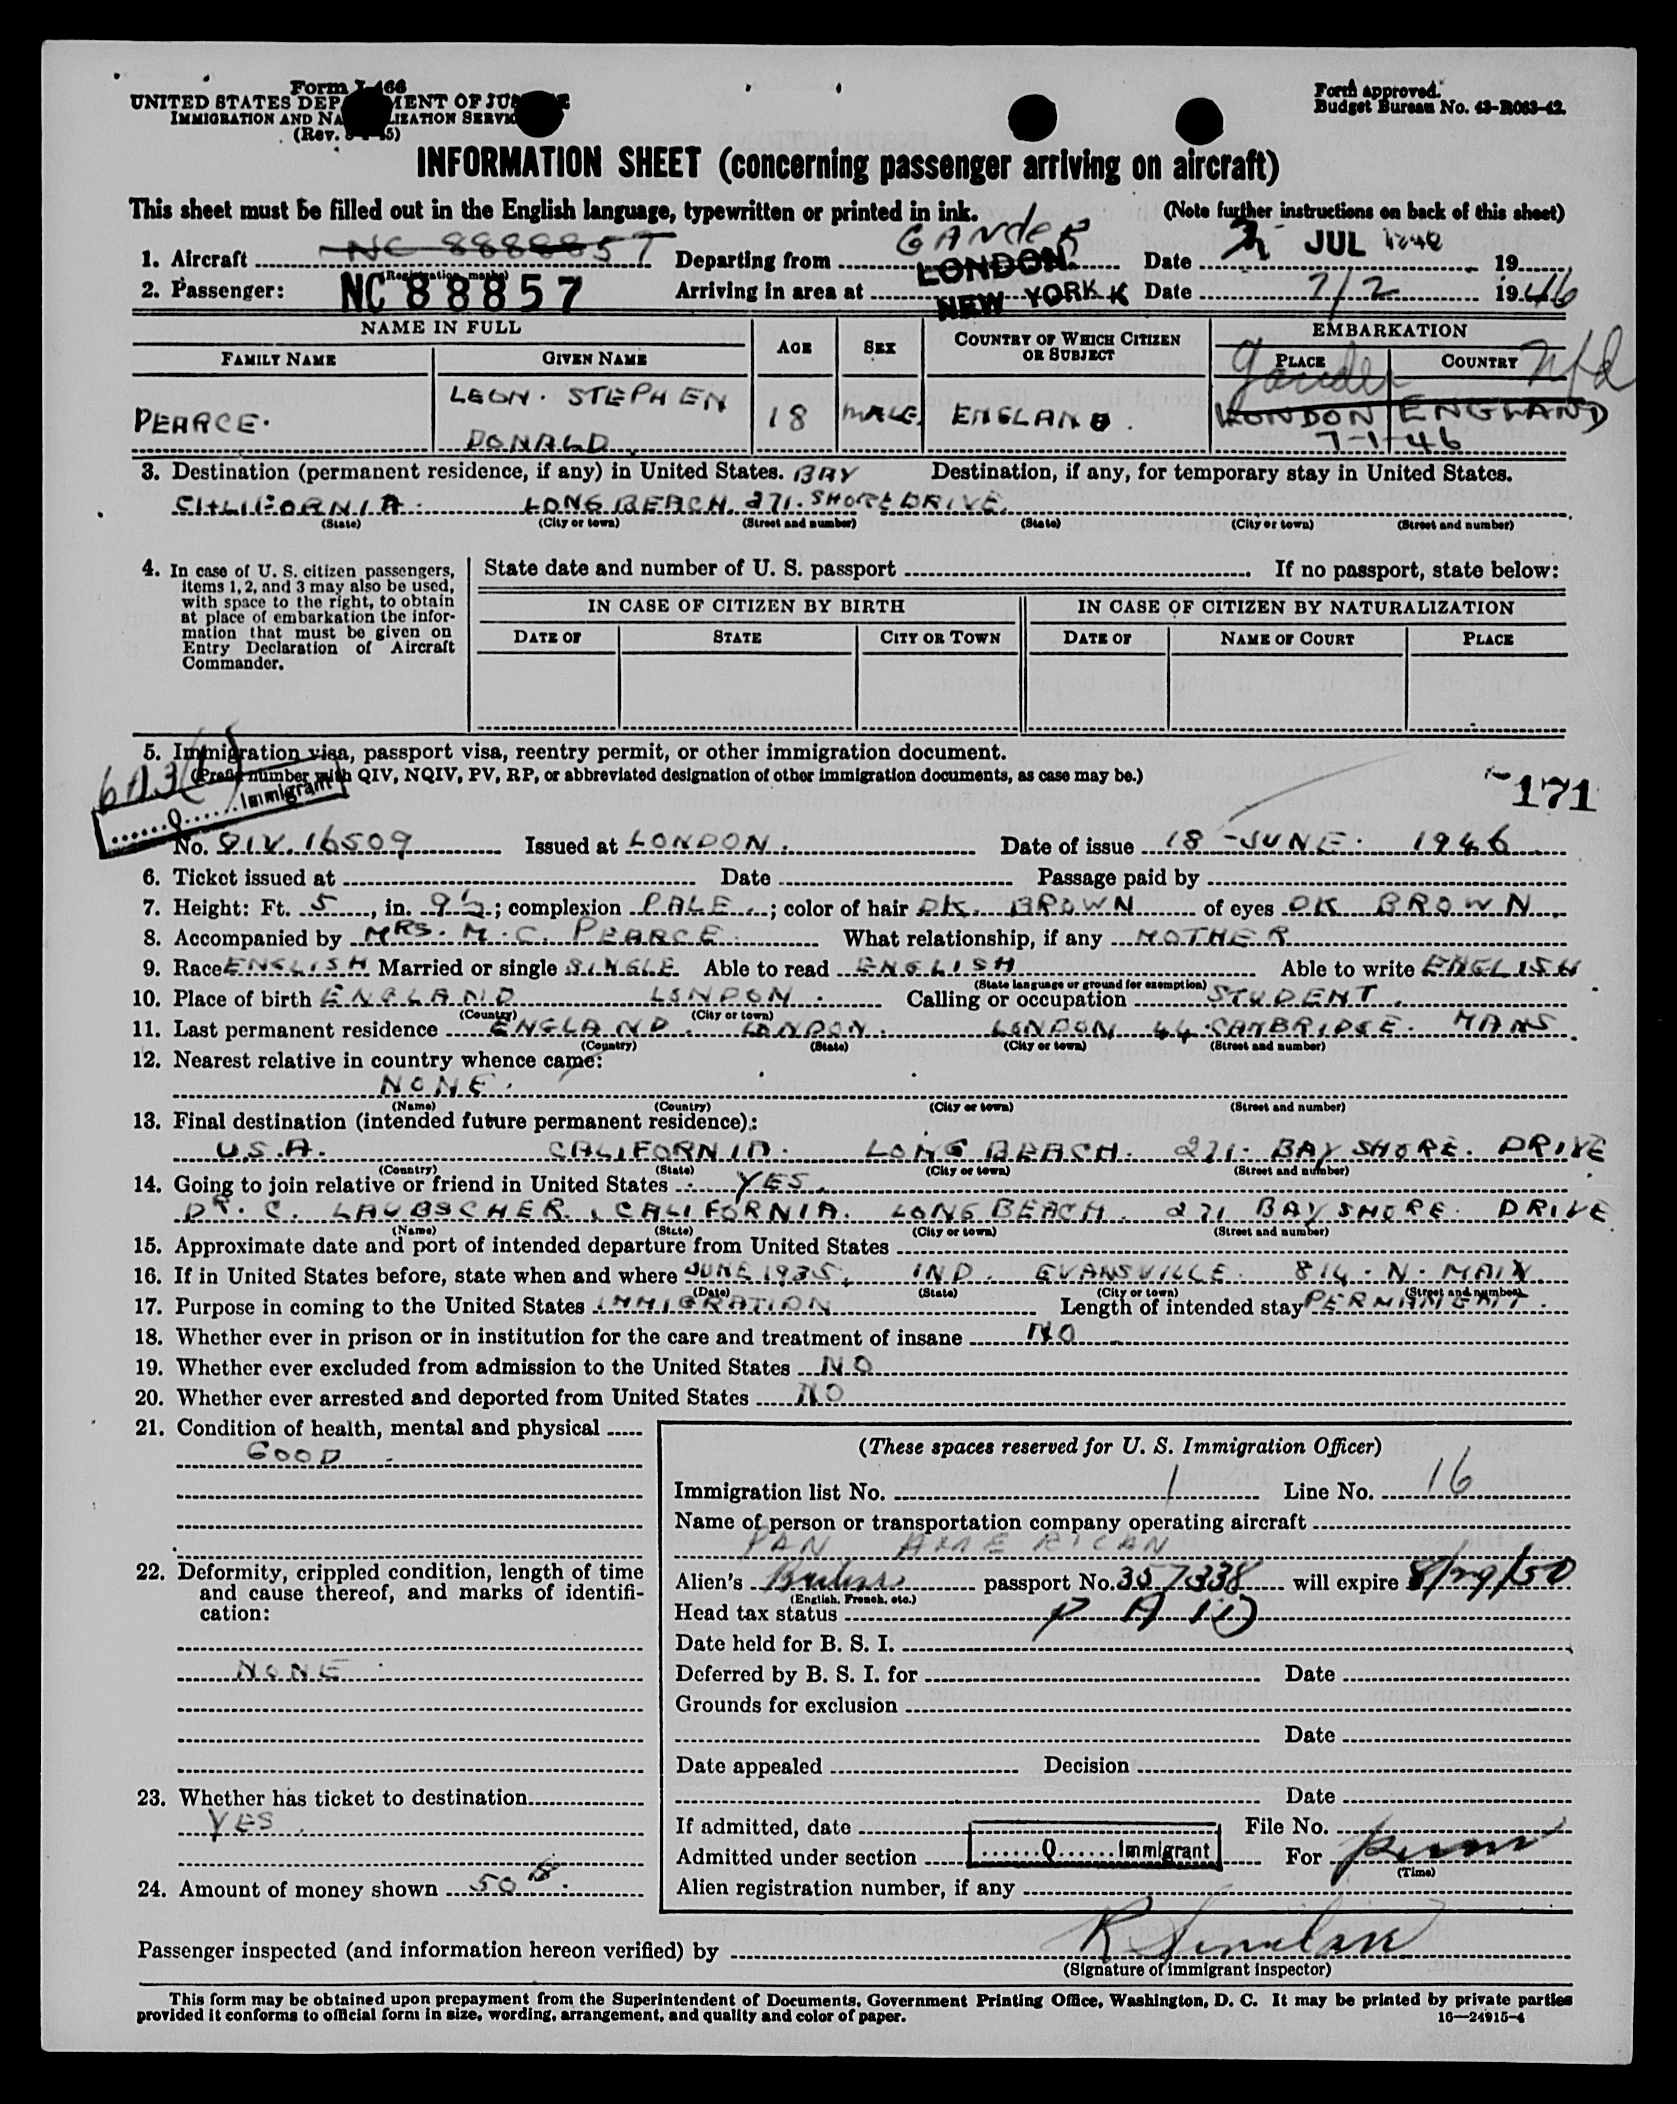 Form I-466
UNITED STATES DEPARTMENT OF JUSTICE
IMMIGRATION AND NATURALIZATION SERVICE
(Rev.
Form approved.
Budget Bureau No. 43-R063-42.
INFORMATION SHEET (concerning passenger arriving on aircraft)
This sheet must be filled out in the English language, typewritten or printed in ink. (Note further instructions on back of this sheet)
1. Aircraft NC 8888857 Departing from LONDON GANDER Date JUL 19
(Registration marks)
2. Passenger: NC 88857 Arriving in area at NEW YORK Date 7/2 1946
NAME IN FULL AGE SEX COUNTRY OF WHICH CITIZEN OR SUBJECT EMBARKATION
FAMILY NAME GIVEN NAME PLACE COUNTRY
Gander Nfd
PEARCE. LEON. STEPHEN DONALD 18 MALE. ENGLAND. LONDON ENGLAND
7-1-46
3. Destination (permanent residence, if any) in United States. BAY Destination, if any, for temporary stay in United States.
CALIFORNIA. LONG BEACH. 271. SHORE DRIVE.
(State) (City or town) (Street and number) (State) (City or town) (Street and number)
4. In case of U. S. citizen passengers, items 1, 2, and 3 may also be used, with space to the right, to obtain at place of embarkation the information that must be given on Entry Declaration of Aircraft Commander.
State date and number of U. S. passport If no passport, state below:
IN CASE OF CITIZEN BY BIRTH IN CASE OF CITIZEN BY NATURALIZATION
DATE OF STATE CITY OR TOWN DATE OF NAME OF COURT PLACE
5. Immigration visa, passport visa, reentry permit, or other immigration document.
(Prefix number with QIV, NQIV, PV, RP, or abbreviated designation of other immigration documents, as case may be.)
171
Q Immigrant
No. QIV. 16509 Issued at LONDON. Date of issue 18-JUNE. 1946
6. Ticket issued at Date Passage paid by
7. Height: Ft. 5, in. 9½; complexion PALE; color of hair DK. BROWN of eyes DK BROWN
8. Accompanied by MRS. M. C. PEARCE. What relationship, if any MOTHER
9. Race ENGLISH Married or single SINGLE Able to read ENGLISH Able to write ENGLISH
(State language or ground for exemption)
10. Place of birth ENGLAND LONDON. Calling or occupation STUDENT.
(Country) (City or town)
11. Last permanent residence ENGLAND. LONDON. LONDON 44 CAMBRIDGE. MANS.
(Country) (State) (City or town) (Street and number)
12. Nearest relative in country whence came:
NONE.
(Name) (Country) (City or town) (Street and number)
13. Final destination (intended future permanent residence):
U.S.A. CALIFORNIA. LONG BEACH. 271. BAY SHORE. DRIVE
(Country) (State) (City or town) (Street and number)
14. Going to join relative or friend in United States YES.
DR. C. LAUBSCHER, CALIFORNIA. LONG BEACH. 271 BAY SHORE. DRIVE
(Name) (State) (City or town) (Street and number)
15. Approximate date and port of intended departure from United States
16. If in United States before, state when and where JUNE 1935. IND. EVANSVILLE. 814. N. MAIN
(Date) (State) (City or town) (Street and number)
17. Purpose in coming to the United States IMMIGRATION Length of intended stay PERMANENT.
18. Whether ever in prison or in institution for the care and treatment of insane NO
19. Whether ever excluded from admission to the United States NO
20. Whether ever arrested and deported from United States NO
21. Condition of health, mental and physical
GOOD
22. Deformity, crippled condition, length of time and cause thereof, and marks of identification:
NONE
23. Whether has ticket to destination
YES.
24. Amount of money shown 50
(These spaces reserved for U. S. Immigration Officer)
Immigration list No. 1 Line No. 16
Name of person or transportation company operating aircraft
PAN AMERICAN
Alien's British passport No. 357338 will expire 8/29/50
(English, French, etc.)
Head tax status PAID
Date held for B. S. I.
Deferred by B. S. I. for Date
Grounds for exclusion
Date
Date appealed Decision
Date
If admitted, date File No.
Admitted under section Q Immigrant For perm
(Time)
Alien registration number, if any
Passenger inspected (and information hereon verified) by
(Signature of immigrant inspector)
This form may be obtained upon prepayment from the Superintendent of Documents, Government Printing Office, Washington, D. C. It may be printed by private parties
provided it conforms to official form in size, wording, arrangement, and quality and color of paper. 16—24915-4